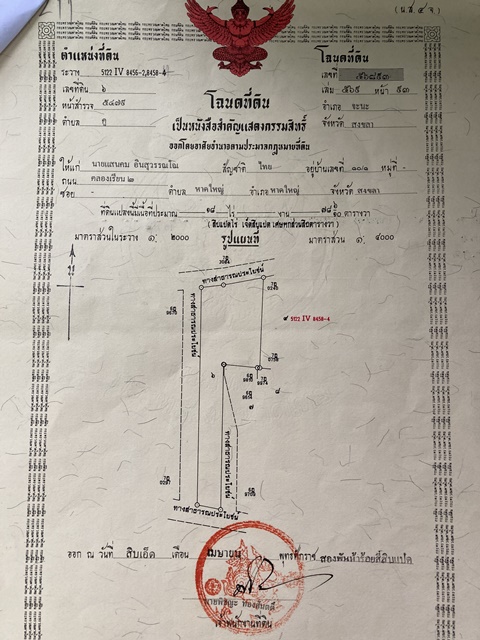 (น.ส.๔ จ)
ตำแหน่งที่ดิน
ระวาง 5122 IV 8456-2,8458-4
เลขที่ดิน ๖
หน้าสำรวจ ๕๔๗๙
ตำบล คู
โฉนดที่ดิน
เลขที่ ๕๖๘๕๓
เล่ม ๕๖๙ หน้า ๕๓
อำเภอ จะนะ
จังหวัด สงขลา
โฉนดที่ดิน
เป็นหนังสือสำคัญแสดงกรรมสิทธิ์
ออกโดยอาศัยอำนาจตามประมวลกฎหมายที่ดิน
ให้แก่ นายแสนคม อินสุวรรณโณ สัญชาติ ไทย อยู่บ้านเลขที่ ๑๐/๑ หมู่ที่ -
ถนน คลองเรียน ๒
ซอย - ตำบล หาดใหญ่ อำเภอ หาดใหญ่ จังหวัด สงขลา
ที่ดินแปลงนี้มีเนื้อที่ประมาณ ๑๘ ไร่ - งาน ตารางวา
มาตราส่วนในระวาง ๑: ๒๐๐๐ รูปแผนที่ มาตราส่วน ๑: ๔๐๐๐
ทางสาธารณประโยชน์
ทางสาธารณประโยชน์
๙ 5122 IV 8458-4
๖
๘
๗
ทางสาธารณประโยชน์
ทางสาธารณประโยชน์
ออก ณ วันที่ สิบเอ็ด เดือน เมษายน พุทธศักราช สองพันห้าร้อยสี่สิบแปด
เจ้าพนักงานที่ดิน